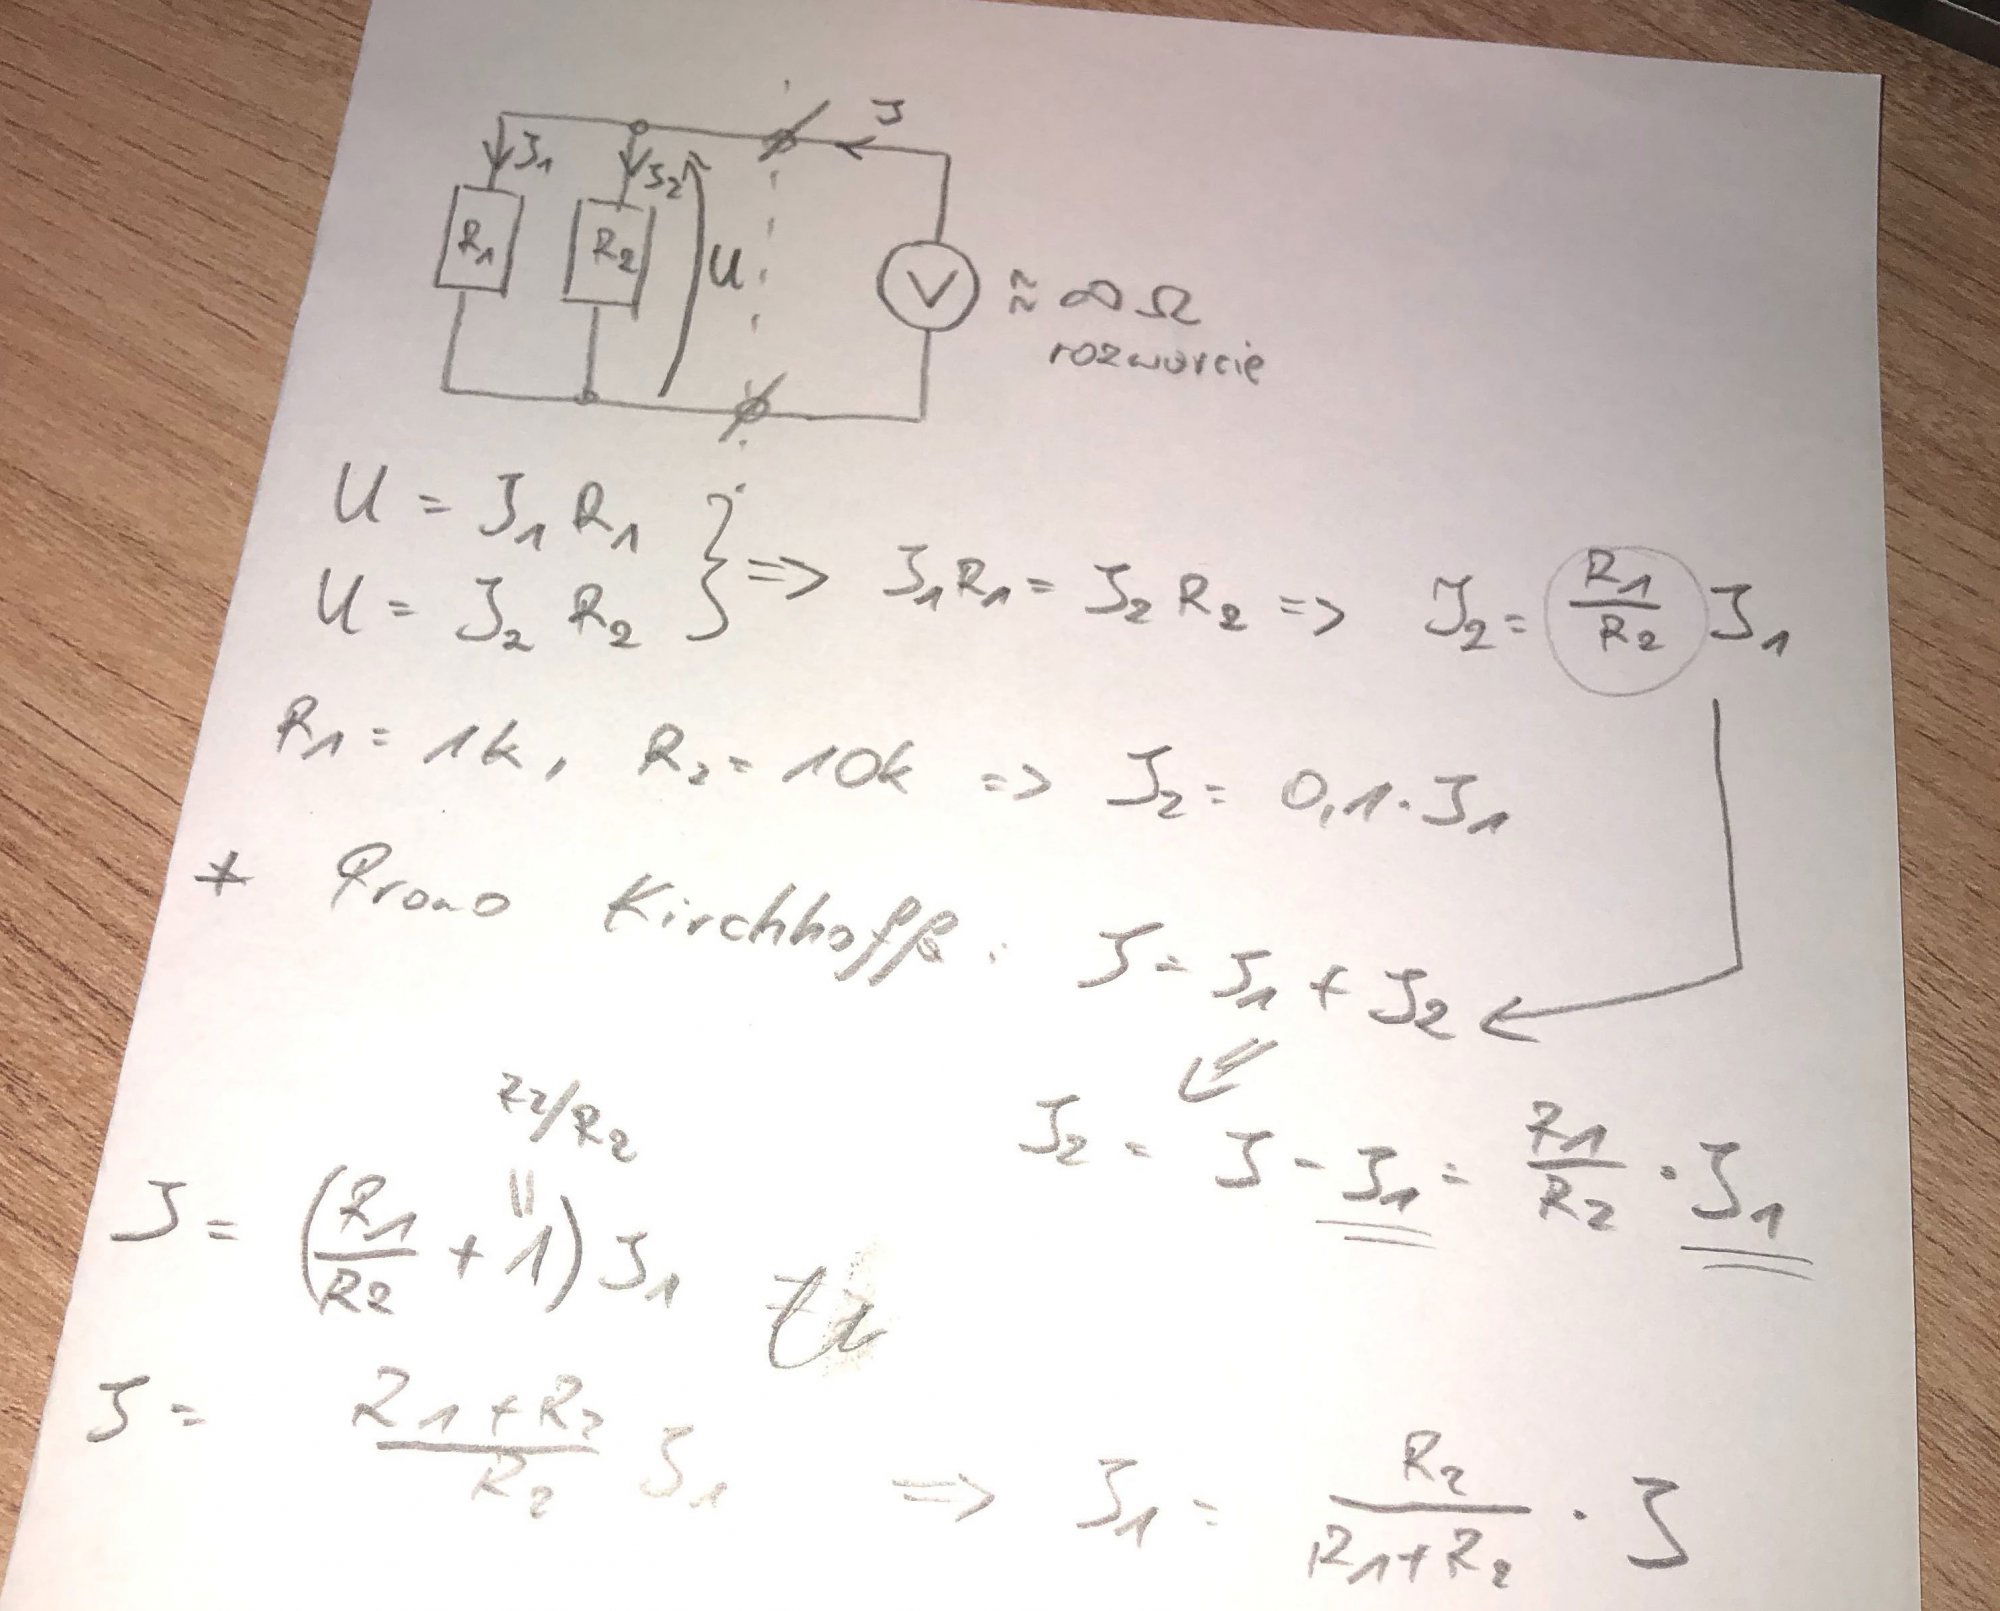 J
J₁
J₂
R₁
R₂
U
V
≈ ∞ Ω
rozwarcie
U = J₁ R₁
U = J₂ R₂
} => J₁R₁ = J₂ R₂ => J₂ = R₁/R₂ J₁
R₁ = 1k, R₂ = 10k => J₂ = 0,1 · J₁
+ Prawo Kirchhoffa: J = J₁ + J₂
R2/R₂
J₂ = J - J₁ = R1/R₂ · J₁
J = (R₁/R₂ + 1) J₁
J = R₁+R₂/R₂ J₁ => J₁ = R₂/R₁+R₂ · J